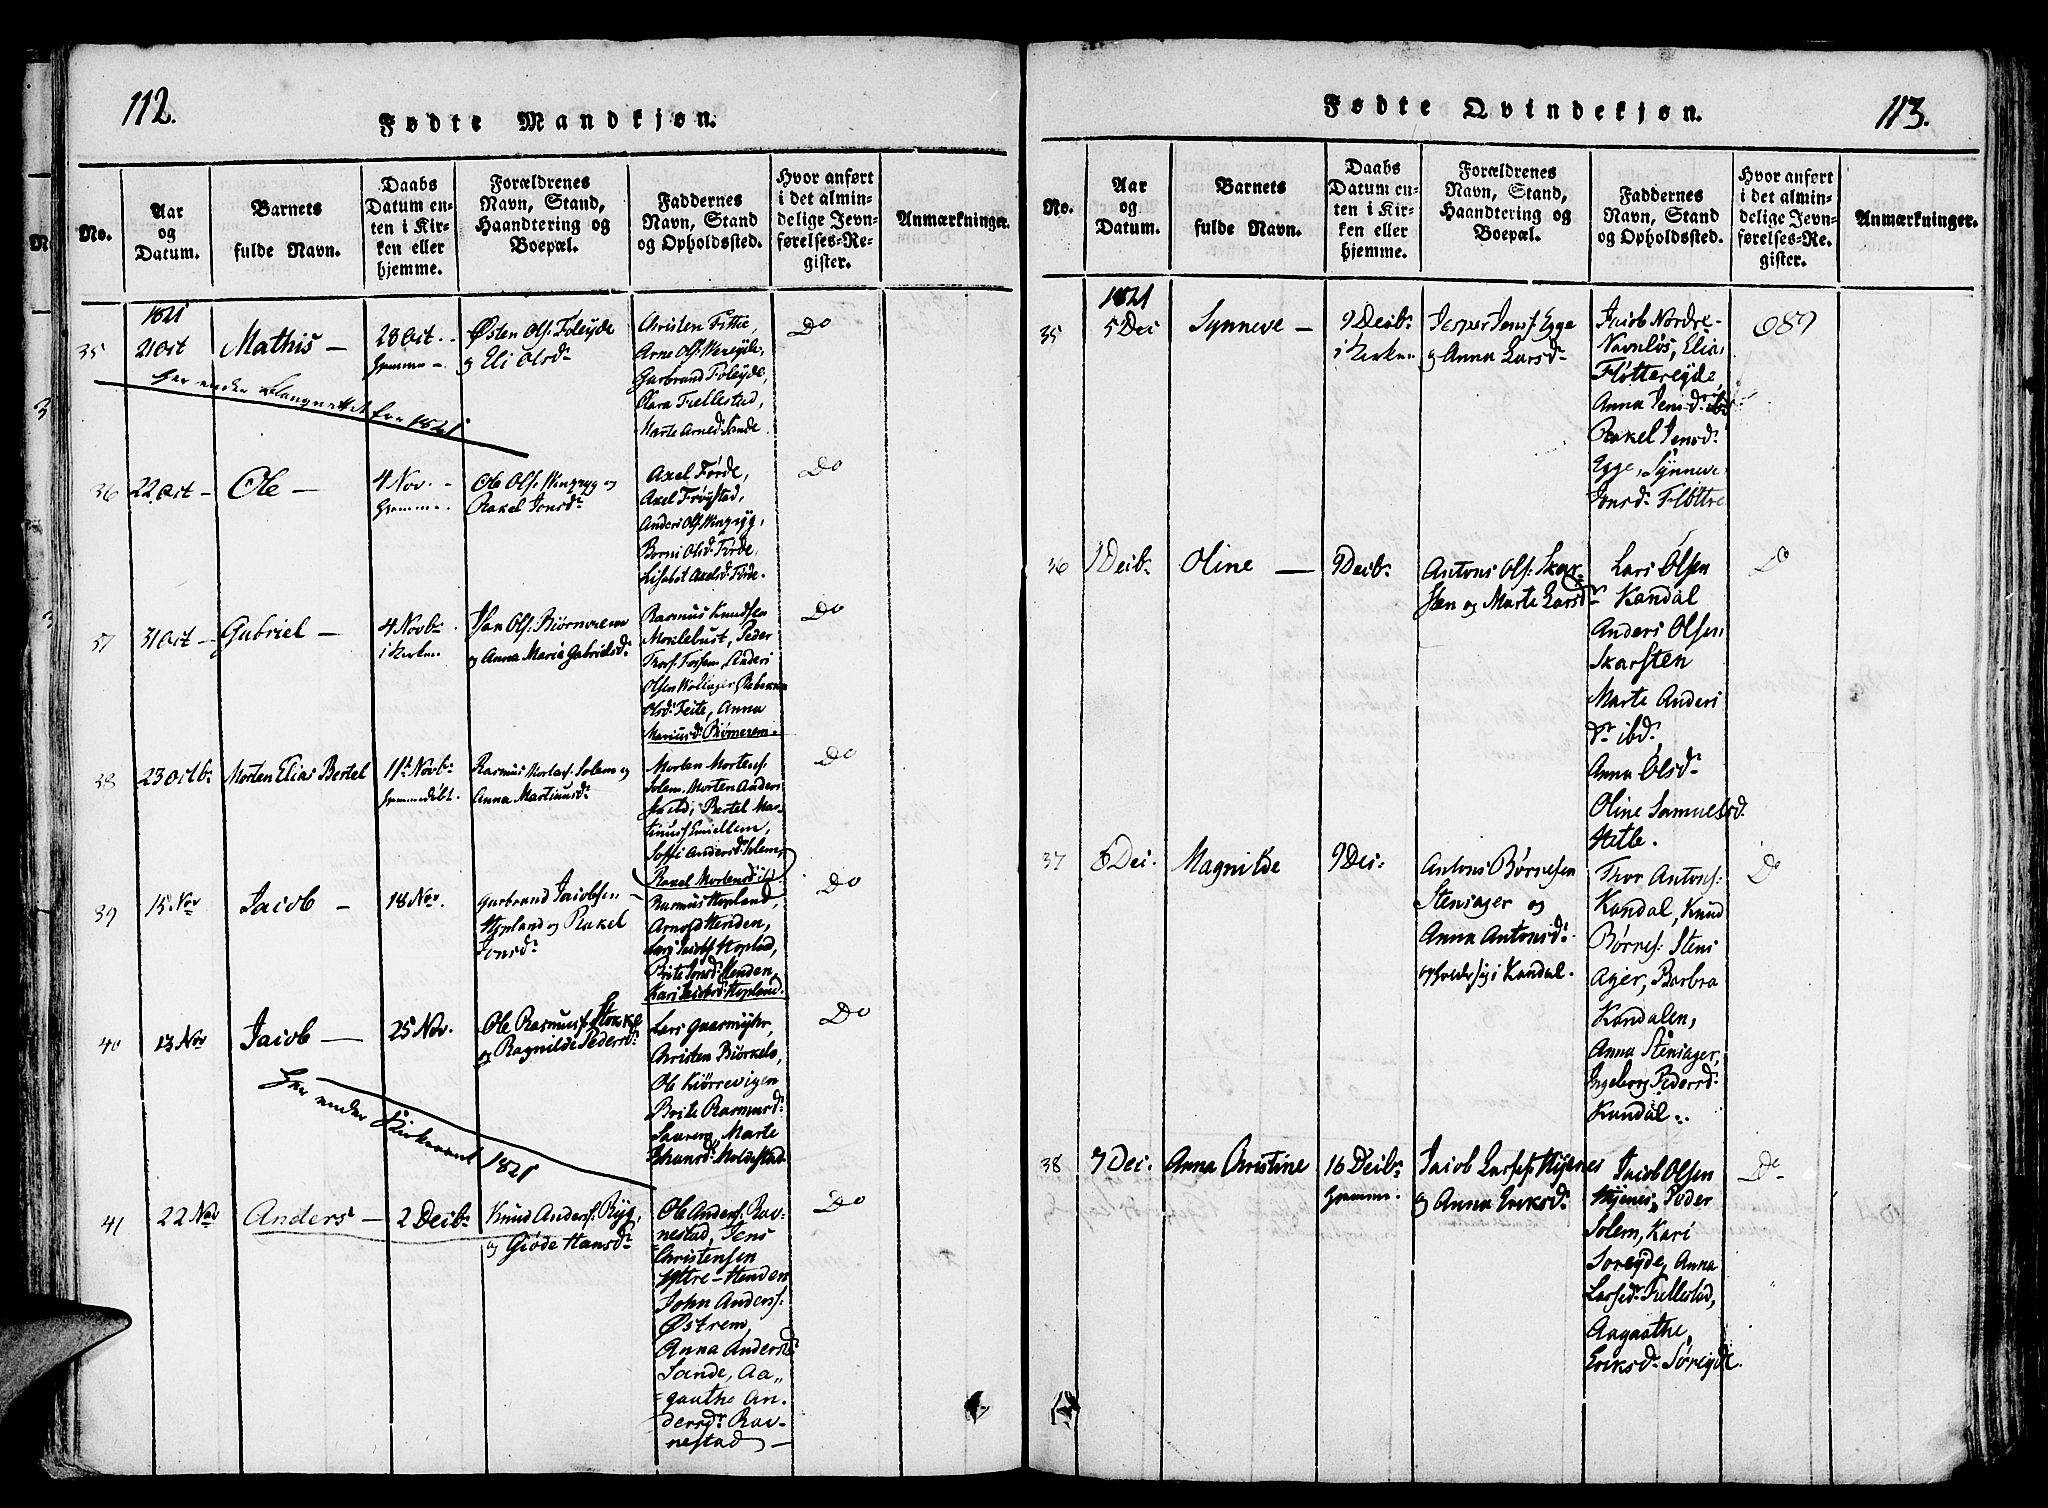 112.
Fødte Mandkjøn.
No.
Aar
og
Datum.
Barnets
fulde Navn.
Daabs
Datum en-
ten i Kir-
ken eller
hjemme.
Forældrenes
Navn, Stand,
Haandtering og
Boepæl.
Faddernes
Navn, Stand
og Opholdssted.
Hvor anført
i det almin-
delige Jevn-
førelses-Re-
gister.
Anmærkninger.
1821
35
21 Oct
Mathis —
28 Oct.
hjemme
Østen Ols: Foleyde
og Eli Olsdr
Christen Fitte,
Arne Ols:
Garbrand Foleyde,
Clara Fiellestad,
Marte Arned: Sande
Do
Her ender for 1821
36
22 Oct —
Ole —
4 Nov. -
hjemme
Ole Ols: og
Rakel Jonsdr
Axel Førde,
Axel Frøystad,
Anders Ols:
Berni Olsd: Førde,
Lisabet Axelsd: Førde.
Do
37
31 Oct —
Gabriel —
4 Novb:
i Kirken
Ols:
og Anna Maria Gabrielsdr
Rasmus Knudsen
Moklebust, Peder
Anders
Olsen
Olsdr Feite, Anna
Do
38
23 Octbr
Morten Elias Bertel
11te Novbr
hjemmedøbt.
Rasmus Solem og
Anna Martinusdr
Morten Mortens:
Solem, Morten Anders
Bertel Mar-
tinus:
Andersd: Solem,
Rakel Mortensd: ibd.
Do
39
15 Nov
Jacob —
18 Nov.
Garbrand Jacobsen
Hopland og Rakel
Jonsdr
Rasmus Hopland,
Arnold Henden,
Lars Jacobs: Hopland,
Brite Jonsd: Henden,
Kari Hopland.
Do
40
13 Nov
Jacob —
25 Nov.
Ole Rasmus:
og Ragnilde Pedersdr
Lars
Christen Biørkelo,
Ole Kiørrevigen
Brite Rasmusd:
Marte
Do
Her ender Kirkeaaret 1821
41
22 Nov
Anders —
2 Decbr
Knud Anders: Ryg,
og Giøde Hansdr
Ole Anders: Rav-
nestad, Jens
Christensen
Yttre-Henden,
John Anders:
Østrem,
Anna Andersdr
Sande, Aa„
gaathe An-
dersdr Rav-
nestad —
Do
113.
Fødte Qvindekjøn.
No.
Aar
og
Datum.
Barnets
fulde Navn.
Daabs
Datum en-
ten i Kir-
ken eller
hjemme.
Forældrenes
Navn, Stand,
Haandtering og
Boepæl.
Faddernes
Navn, Stand
og Opholdssted.
Hvor anført
i det almin-
delige Jevn-
førelses-Re-
gister.
Anmærkninger.
1821
35
5 Dec
Synneve —
9 Decb:
i Kirken
Jesper Jens: Egge
og Anna Larsdr
Jacob Nordre-
Navnløs, Elias
Fløttereyde
Anna Jensdr ibd
Rakel Jensdr
Egge, Synneve
Jonsdr Fløttre
089
36
1 Decbr
Oline —
9 Decbr
Antoni Ols: Skar-
sten og Marte Larsdr
Lars Olsen
Kandal
Anders Olsen
Skarsten
Marte Anders
dr ibd:
Anna Olsdr
Oline Samuelsd.
Hetle.
Do
37
8 Dec.
Magnilde
9 Dec:
Antoni Børnesen
Stensager og
Anna Antonsdr
opholder sig i Kandal.
Thor Antons:
Kandal, Knud
Børnes: Stens
Ager, Barbra
Kandalen,
Anna Stensager,
Ingeborg Pedersd:
Kandal..
Do
38
7 Dec.
Anna Christine
16 Decbr
hjemme
Jacob Larses: Hyenes
og Anna Eriksdr
Jacob Olsen
Hyenes, Peder
Solem, Kari
Søreyde, Anna
Larsedr Fiellestad,
Aagaathe
Eriksdr Søreyde.
Do